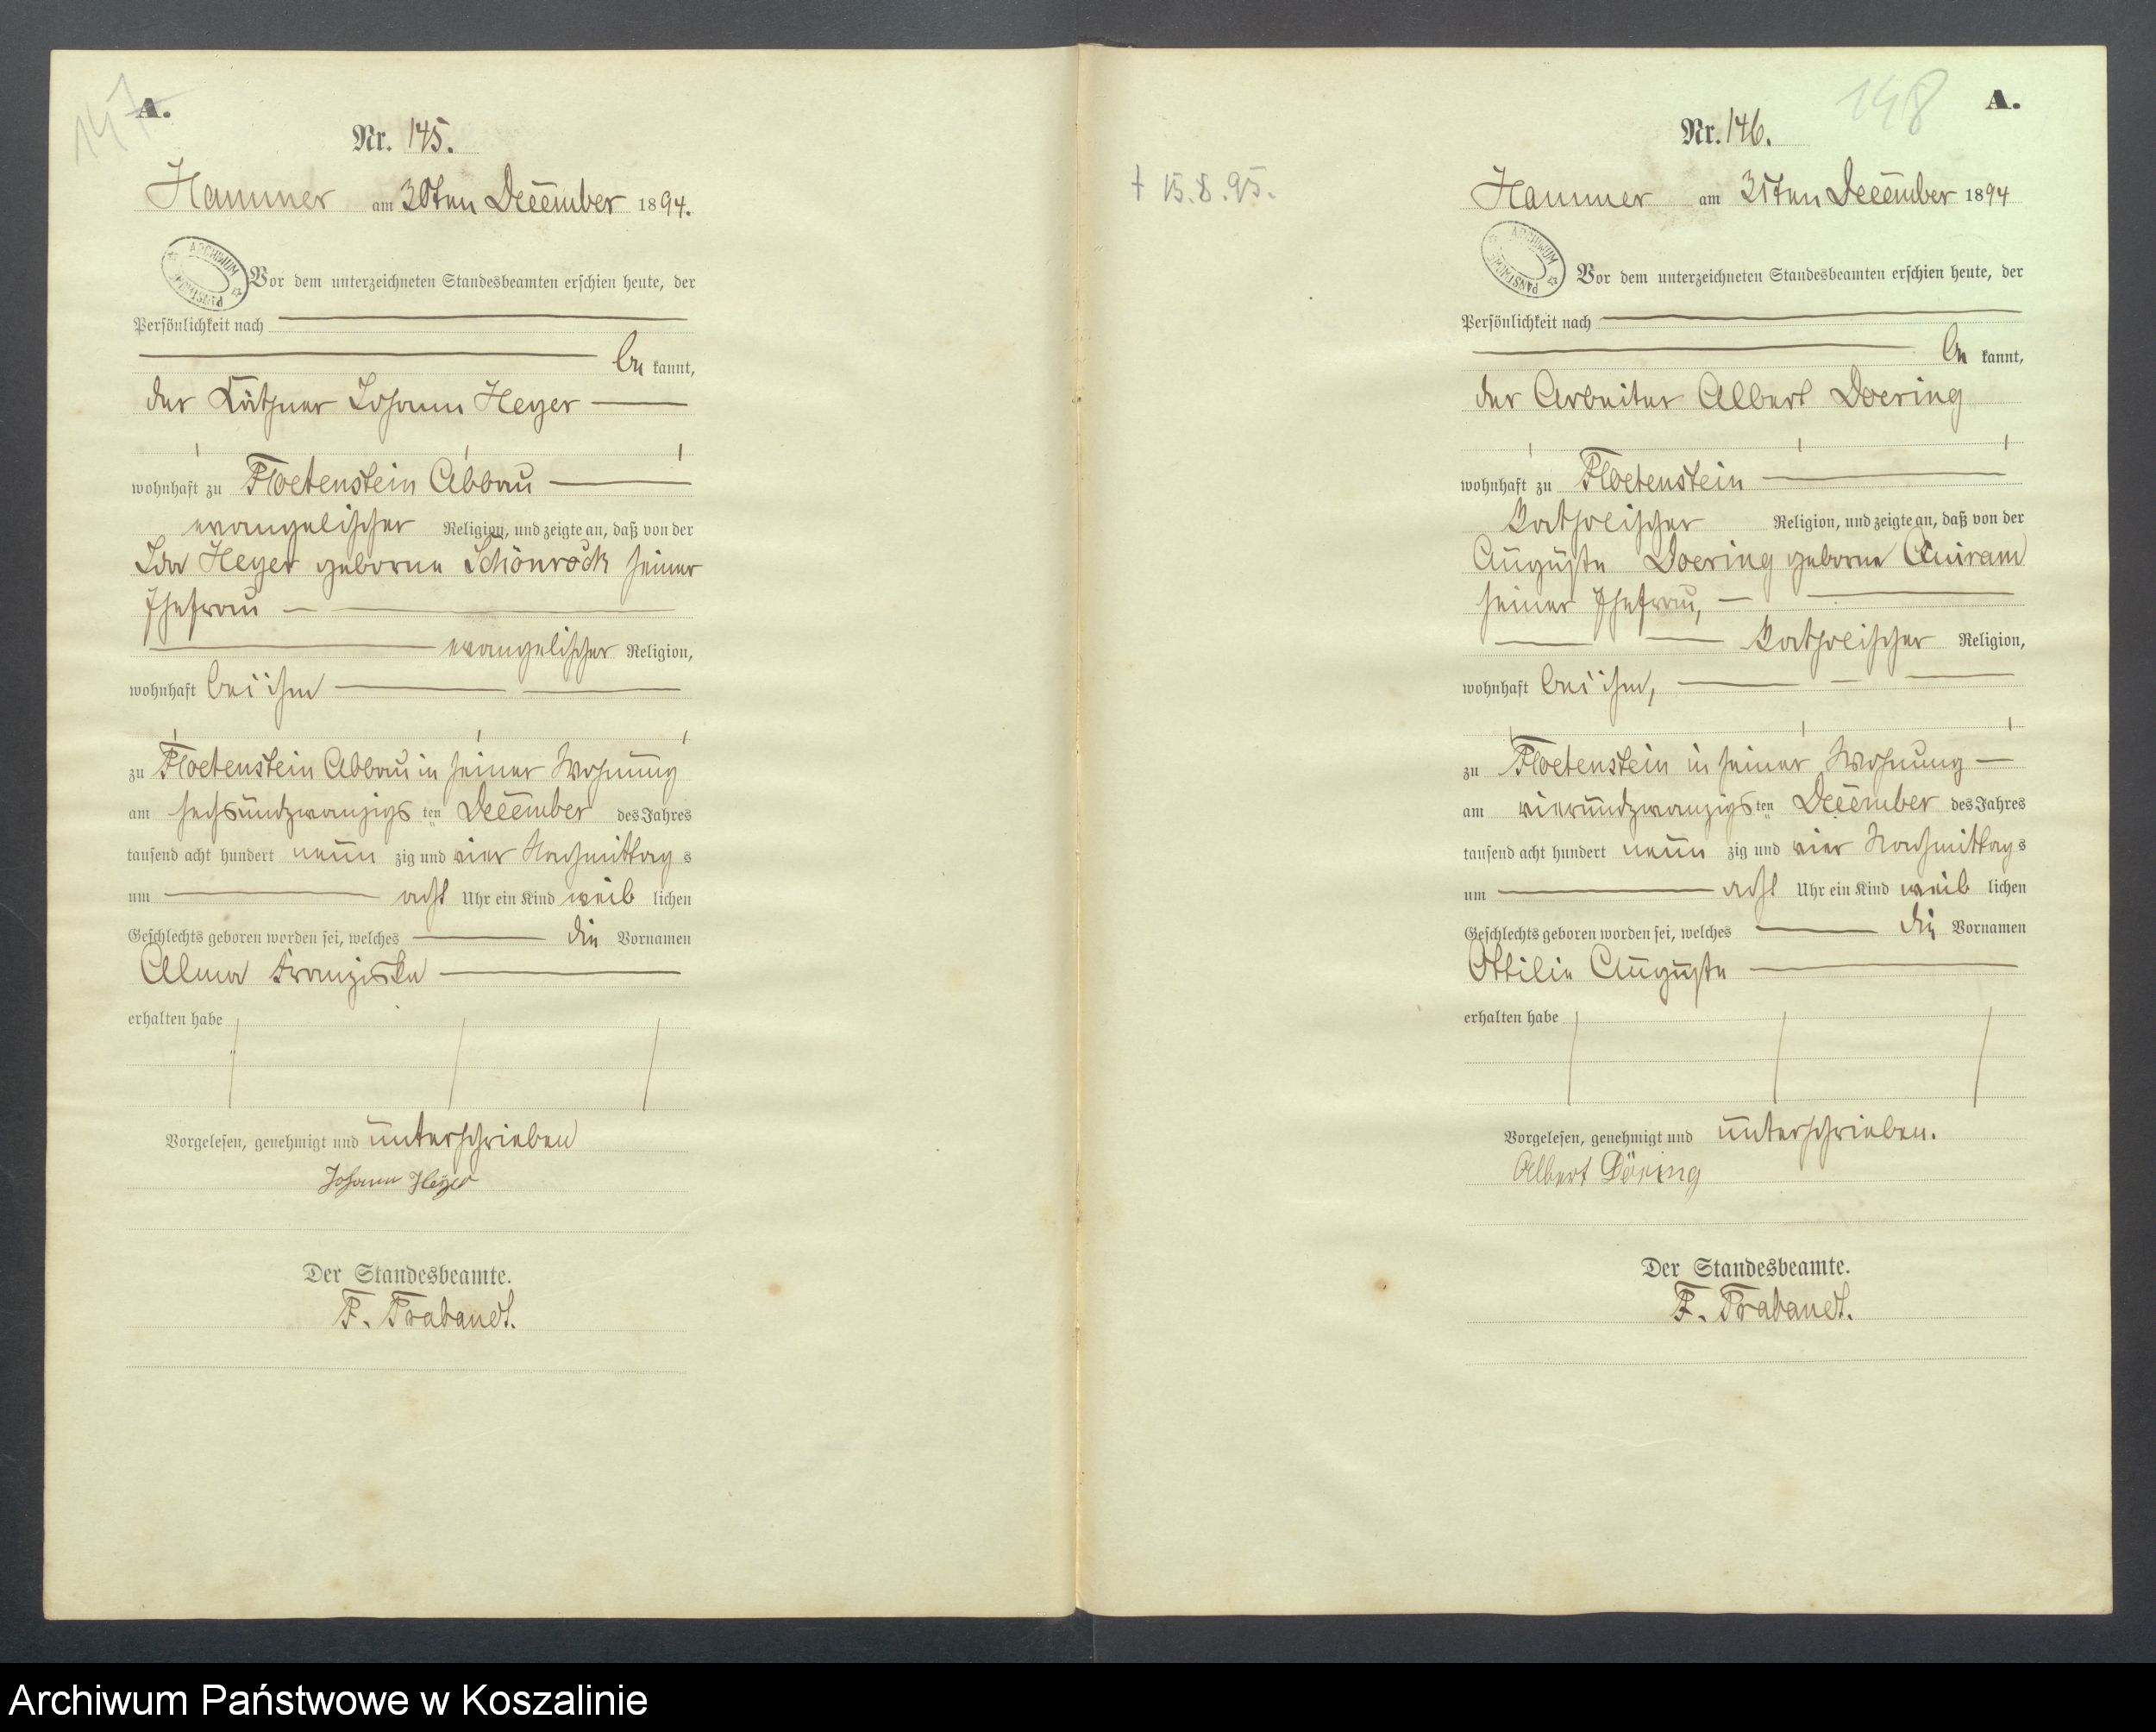 147
A.
Nr. 145.
Hammer am 30ten December 1894.
ARCHIWUM PAŃSTWOWE
Vor dem unterzeichneten Standesbeamten erschien heute, der
Persönlichkeit nach
be kannt,
der Käthner Johann Heyer
wohnhaft zu Floetenstein Abbau
evangelischer Religion, und zeigte an, daß von der
Ida Heyer geborne Schönrock seiner
Ehefrau
evangelischer Religion,
wohnhaft bei ihm
zu Floetenstein Abbau in seiner Wohnung
am sechsundzwanzigs ten December des Jahres
tausend acht hundert neun zig und vier Nachmittag s
um acht Uhr ein Kind weib lichen
Geschlechts geboren worden sei, welches die Vornamen
Alma Franziska
erhalten habe
Vorgelesen, genehmigt und unterschrieben
Johann Heyer
Der Standesbeamte.
F. Trabandt.
148
A.
Nr. 146.
† 15.8.95.
Hammer am 31ten December 1894
ARCHIWUM PAŃSTWOWE
Vor dem unterzeichneten Standesbeamten erschien heute, der
Persönlichkeit nach
be kannt,
der Arbeiter Albert Doering
wohnhaft zu Floetenstein
katholischer Religion, und zeigte an, daß von der
Auguste Doering geborne
seiner Ehefrau,
katholischer Religion,
wohnhaft bei ihm,
zu Floetenstein in seiner Wohnung
am vierundzwanzigs ten December des Jahres
tausend acht hundert neun zig und vier Nachmittag s
um acht Uhr ein Kind weib lichen
Geschlechts geboren worden sei, welches die Vornamen
Ottilie Auguste
erhalten habe
Vorgelesen, genehmigt und unterschrieben.
Albert Döring
Der Standesbeamte.
F. Trabandt.
Archiwum Państwowe w Koszalinie